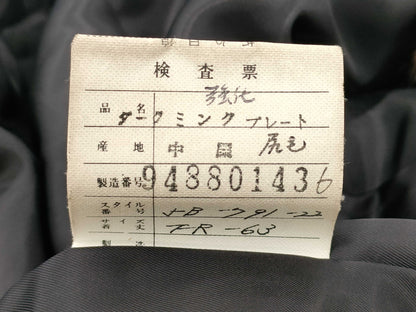 検査票
強化
品名 ダークミンクプレート
産地 中国 尻毛
製造番号 948801436
スタイル番号 JB-791-22
サイズ着丈 FR-63